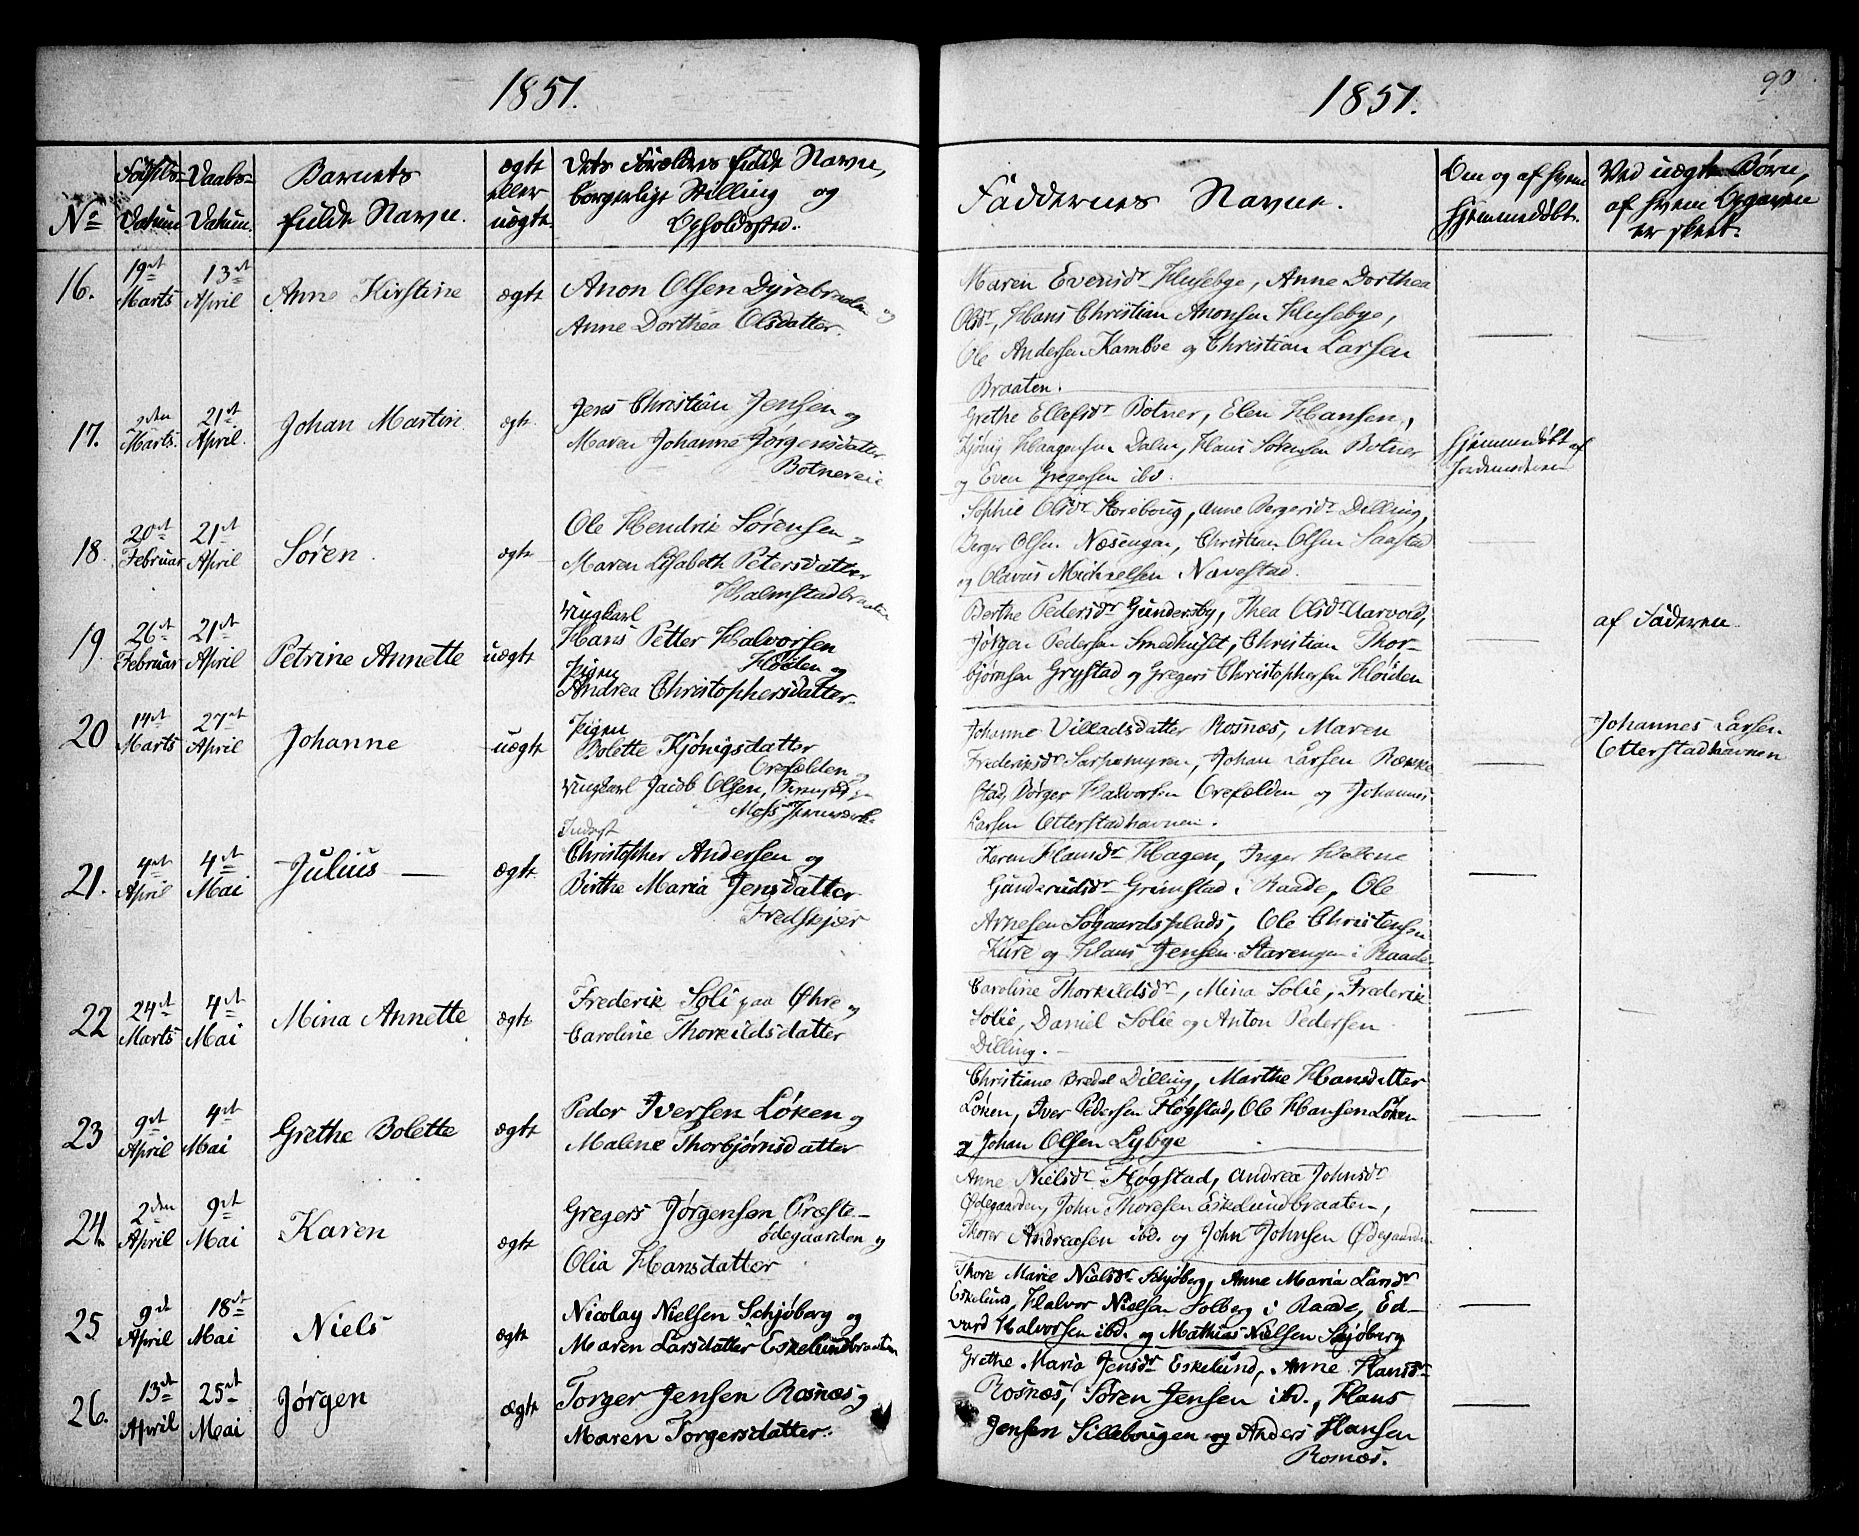 1851.
No
Födsels-
Datum
Daabs-
Datum.
Barnets
fulde Navn.
ægte
eller
uægte.
Dets Forældres fulde Navne,
borgerlige Stilling og
Opholdssted.
16.
19et
Marts
13et
April
Anne Kirstine
ægte
Anon Olsen Dyrebraaten og
Anne Dorthea Olsdatter.
17.
2den
Marts.
21et
April.
Johan Martin
ægte
Jens Christian Jensen og
Maren Johanne Jørgensdatter
Botnereie
18.
20et
Februar
21et
April
Søren.
ægte
Ole Hendrik Sørensen og
Maren Lisabeth Petersdatter
Halmstadbraaten
19
26et
Februar
21et
April
Petrine Annette
uægte
Ungkarl
Hans Petter Halvorsen
Kløiden og
Pigen
Andrea Christophersdatter.
20
14et
Marts
27et
April
Johanne
uægte
Pigen
Bolette Kjønigsdatter
Orefælden og
Ungkarl Jacob Olsen,
Moss Jernværk.
Inderst
21.
4et
April
4et
Mai
Julius —
ægte
Christopher Andersen og
Birthe Maria Jensdatter
Fredskjær
22
24et
Marts
4et
Mai
Mina Annette
ægte
Frederik Soli paa Øhre og
Caroline Thorkildsdatter
23
9et
April
4et
Mai
Grethe Bolette
ægte
Peder Iversen Løken og
Malene Thorbjørnsdatter
24.
2den
April
9et
Mai
Karen
ægte
Gregers Jørgensen Præste-
Ødegaarden og
Olia Hansdatter
25
9et
April
18et
Mai
Niels
ægte
Nicolay Nielsen Schjøberg og
Maren Larsdatter Eskelundbraaten
26.
13et
April
25et
Mai
Jørgen
ægte
Torger Jensen Rosnæs og
Maren Torgersdatter.
1851.
90
Faddernes Navne.
Den og af hvem
hjemmedøbt.
Ved uægte Børn,
af hvem Opgaven
er skeet.
Maren Evensdr Husebye, Anne Dorthea
Olsdr, Hans Christian Anonsen Husebye,
Ole Andersen Kamboe og Christian Larsen
Braaten.
Grethe Ellefsdr Botner, Elen Hansen,
Kjönig Haagensen Dalen, Hans Sørensen Botner
og Even Gregersen ibd.
Hjemmedøbt af
Jordemoderen
Sophie Olsdr Horeboug, Anne Bergersdr Dilling,
Berger Olsen Næsengan, Christian Olsen Saastad
og Olavus Michælsen Nævestad.
Berthe Pedersdr Gundersby, Thea Olsdr Aarvold,
Jørgen Pedersen Smedhuset, Christian Thor-
bjørnsen Grystad og Gregers Christophersen Kløiden
af Faderen
Johanne Vilkadsdatter Rosnæs, Maren
Frederiksdr Sarpamyren, Johan Larsen Rænne
stad, Børger Halvorsen Orefælden og Johannes
Larsen Otterstadhavnen.
Johannes Larsen
Otterstadhavnen
Karen Hansdr Hagen, Inger Helene
Gundersdr Grimstad i Raade, Ole
Arnesen Sogaardsplads, Ole Christensen
Kure og Hans Jensen Starengen i Raade
Caroline Thorkildsdr, Mina Solie, Frederik
Solie, Daniel Solie og Anton Pedersen
Dilling.
Christiane Bredal Dilling, Marthe Hansdatter
Løken, Iver Pedersen Høgstad, Ole Hansen Løken
og Johan Olsen Lybye
Anne Nielsdr Høgstad, Andrea Johnsdr
Ødegaarden, John Thoresen Eskelundbraaten,
Thorer Andreasen ibd. og John Johnsen Ødegaarden
Thore Marie Nielsdr Schjøberg, Anne Maria Larsdr
Eskelund, Halvor Nielsen Solberg i Raade, Ed-
vard Halvorsen ibd. og Mathias Nielsen Skjøberg
Grethe Maria Jensdr Eskelund, Anne Hansdr
Rosnæs, Søren Jensen ibd., Hans
Jensen Sillebougen og Anders Hansen
Rosnæs.